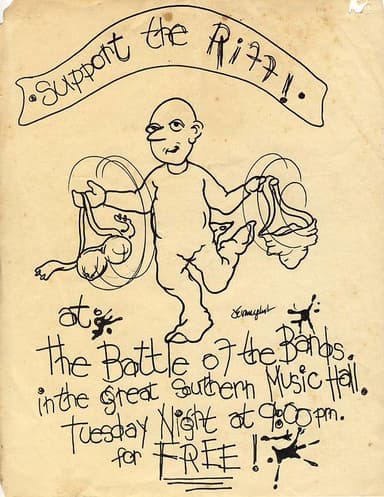 Support the Riff!
at:
the Battle of the Bands.
in the Great Southern Music Hall.
Tuesday Night at 9:00 pm.
for FREE!